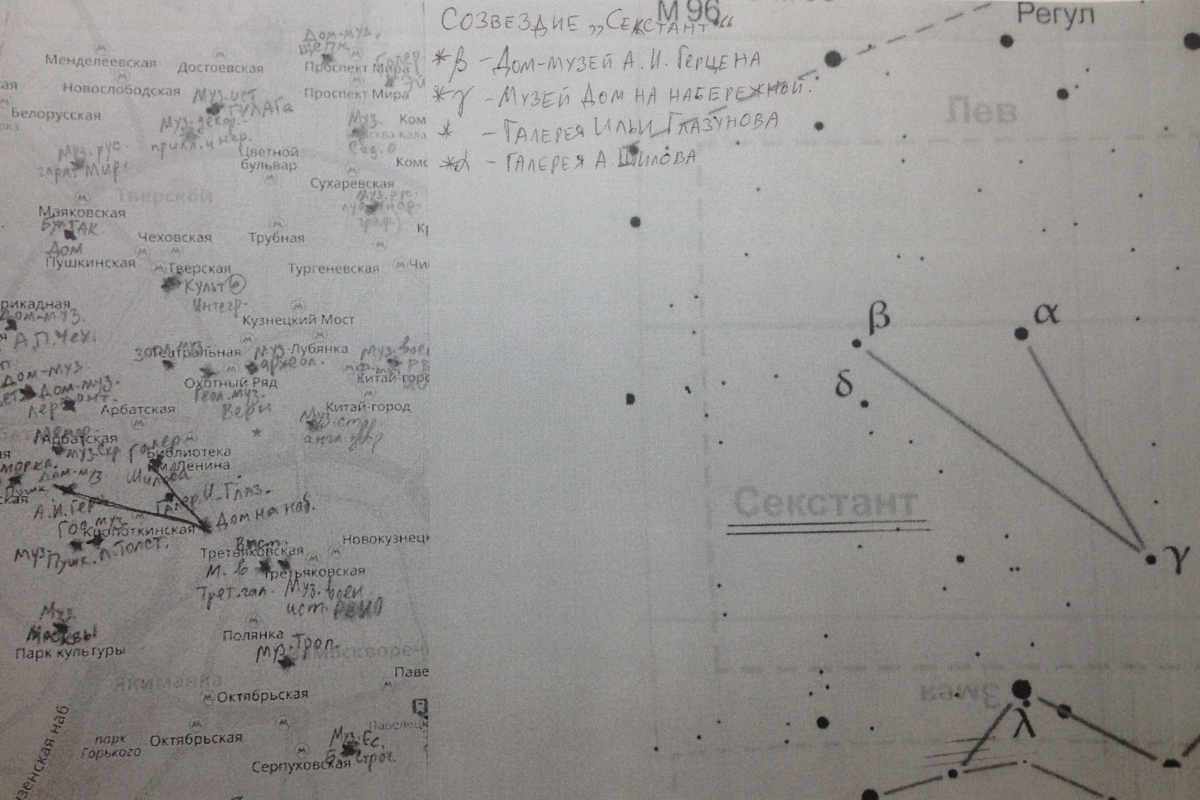 СОЗВЕЗДИЕ „СЕКСТАНТ“
*β – ДОМ-МУЗЕЙ А.И. ГЕРЦЕНА
*γ – МУЗЕЙ ДОМ НА НАБЕРЕЖНОЙ.
* – ГАЛЕРЕЯ ИЛЬИ ГЛАЗУНОВА
*α – ГАЛЕРЕЯ А. ШИЛОВА
М 96
Регул
Лев
β
α
δ
Секстант
γ
Змея
λ
Дом-муз.
Щепк.
Менделеевская
Достоевская
Проспект Мира
Новослободская
Проспект Мира
Муз.ист
ГУЛАГа
Белорусская
Муз.декор.-
прикл.и нар.
Муз.
Ком
Сад.
Муз.рус.
гарм.
Мир.
Цветной
бульвар
Комс
Сухаревская
Тверской
Маяковская
БУЛГАК
Дом
Чеховская
Трубная
Пушкинская
Тверская
Тургеневская
Чи
Культ
Интегр.
рикадная
Дом-муз.
А.П.Чех.
Кузнецкий Мост
Театральная
Муз.
Лубянка
археол.
Муз.воен
Китай-горо
Охотный Ряд
Геол.муз.
Верн
Дом-муз.
Дом-муз.
Лермонт.
Арбатская
Китай-город
Муз.стар
англ.двор
Арбатская
муз.скр
Галер
Библиотека
им.Ленина
Шилова
Дом-муз
А.И.Гер
Галер.И.Глаз.
Дом на наб.
Гос.муз.
Кропоткинская
Муз.
Пушк.
Л.Толст.
Третьяковская
Новокузнец
М. в
Третьяковская
Трет.гал.
Муз.воен
ист. РВИО
Муз.
Москвы
Парк культуры
Полянка
Муз.Троп.
Замоскворечье
Паве
Якиманка
Октябрьская
парк
Горького
Октябрьская
Павелец
Муз.Ес.
Строч.
Серпуховская
зенская наб